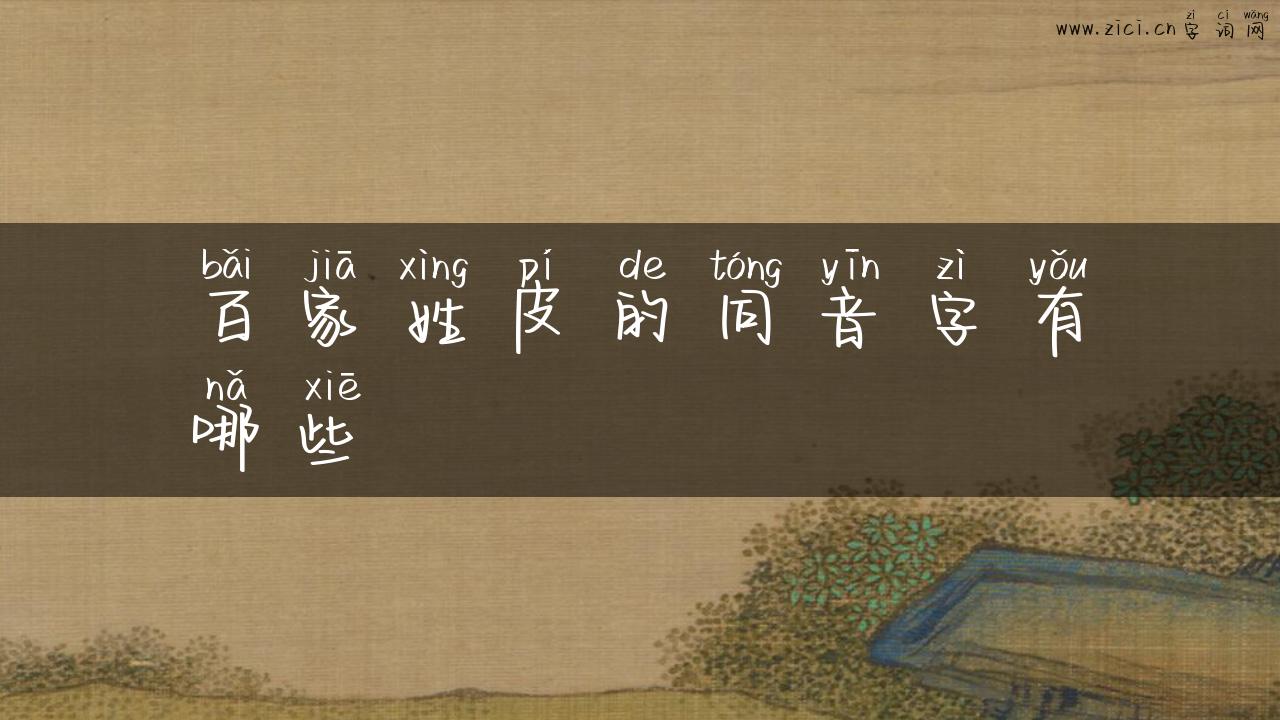 zì cí wǎng
www.zici.cn 字词网
bǎi jiā xìng pí de tóng yīn zì yǒu
百家姓皮的同音字有
nǎ xiē
哪些